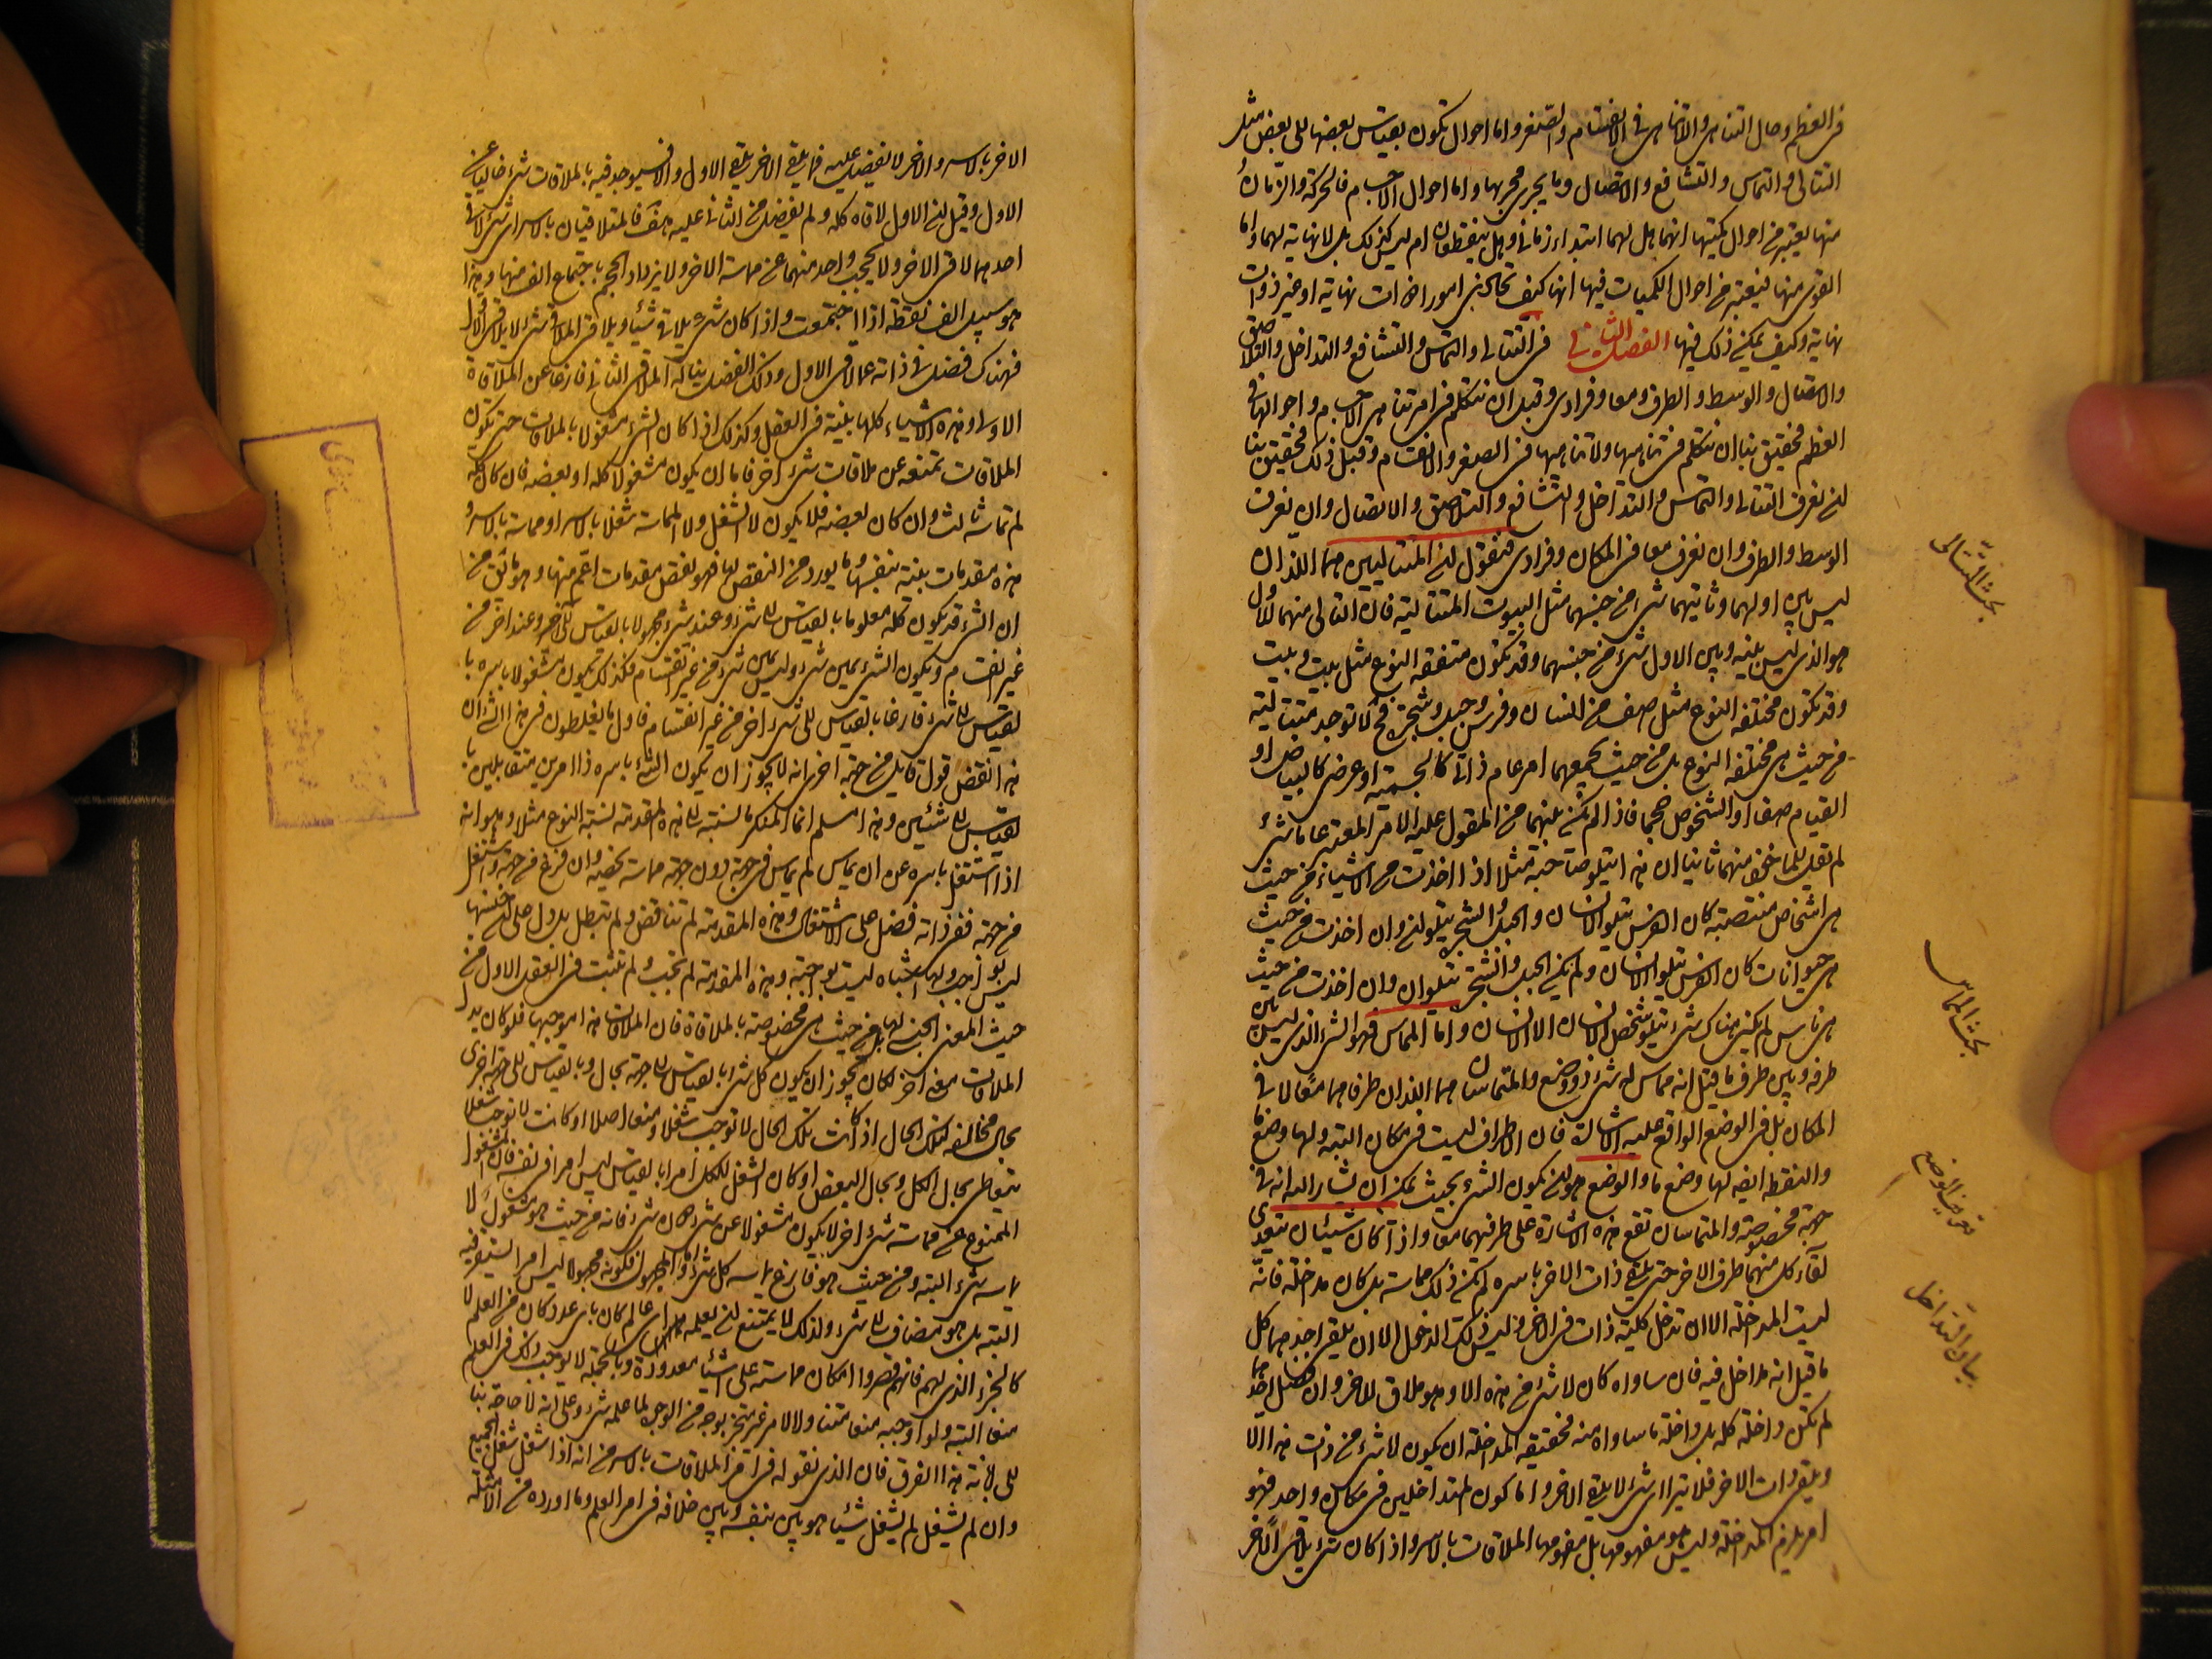 فى العظم وحال التناهى واللاتناهى فى الانقسام والصغر واما احوال تكون بقياس بعضها الى بعض مثل
التتالى والتماس والتشافع والاتصال وما يجرى مجريها واما احوال الاجسام فالحركة والزمان
منها يعتبر من احوال كميتها انهما هل لهما ابتداء زمانى وهل ينقطعان ام ليس كذلك بل لا نهاية لهما واما
القوى منها فيعتبر من احوال الكميات فيها انها كيف تحاذى امورا ذات نهاية او غير ذوات
نهاية وكيف يمكن ذلك فيها الفصل الثانى فى التتالى والتماس والتشافع والتداخل والتلاصق
والاتصال والوسط والطرف ومعا وفرادى وقبل ان نتكلم فى امر تناهى الاجسام واحوالها فى
العظم فحقيق بنا ان نتكلم فى تناهيها ولا تناهيها فى الصغر والانقسام وقبل ذلك فحقيق بنا
ان نعرف التتالى والتماس والتداخل والتشافع والتلاصق والاتصال وان نعرف
الوسط والطرف وان نعرف معا فى المكان وفرادى فنقول ان المتتاليين هما اللذان
ليس بين اولهما وثانيهما شئ من جنسهما مثل البيوت المتتالية فان التالى منهما للاول
هو الذى ليس بينه وبين الاول شئ من جنسهما وقد تكون متفقة النوع مثل بيت وبيت
وقد تكون مختلفة النوع مثل صف من انسان وفرس وجبل وشجر فح لا توجد متتالية
من حيث هى مختلفة النوع بل من حيث يجمعهما امر عام ذاتى كالجسمية او عرضى كالبياض او
القيام صفا او الشخوص حجما فاذا لم يكن بينهما من المقول عليه الامر المعتبر عاما شئ
هى اشخاص منتصبة كان الفرس يتلو الانسان والجبل والشجر يتلوان وان اخذت من حيث
هى حيوانات كان الفرس يتلو الانسان ولم يكن الجبل والشجر يتلوان وان اخذت من حيث
هى ناس لم يكن هناك شئ يتلو شخص الانسان الا الانسان واما المماس فهو الشئ الذى ليس بين
طرفه وبين طرف ما قيل انه مماس له شئ ذو وضع والمتماسان هما اللذان طرفاهما معا لا فى
المكان بل فى الوضع الواقع عليه الاشارة فان الاطراف ليست فى مكان البتة ولها وضع ما
والنقطة ايضا لها وضع ما والوضع هو ان يكون الشئ بحيث يمكن ان يشار اليه انه فى
جهة مخصوصة والمتماسان تقع هذه الاشارة على طرفيهما معا واذا كان شيئان يتعدى
لقاء كل منهما طرف الاخر حتى يلقى ذات الاخر باسره لم يكن ذلك مماسة بل كان مداخلة فانه
ليست المداخلة الا ان تدخل كلية ذات فى الاخر وليس ذلك الدخول الا ان يلقى احدهما كل
ما قيل انه مداخل فيه فان ساواه كان لا شئ من هذه الا وهو ملاق للاخر وان فضل احدهما
لم يكن داخله كله بل داخله ما ساواه منه فحقيقة المداخلة ان يكون لا شئ من ذات هذا الا
ويلقى ذات الاخر فلا يترا شئ لا يلقى الاخر واما كون المتداخلين فى مكان واحد فهو
امر يلزم المداخلة وليس هو مفهومها بل مفهومها الملاقات بالاسر واذا كان شئ يلاقى الاخر
بحث التتالى
بحث المماس
تعريف الوضع
بيان التداخل
الاخر بالاسر والاخر لا يفضل عليه فما يلقى الاخر يلقى الاول والا فسيوجد فيه بالملاقات شئ خاليا عن
الاول وقيل ان الاول لاقاه كله ولم يفضل من الثانى عليه هف فالمتلاقيان بالاسر اى شئ لاقى
احدهما لاقى الاخر ولا يحجب واحد منهما عن مماسة الاخر ولا يزداد الحجم باجتماع الف منها وهذا
هو سبيل الف نقطة اذا اجتمعت واذا كان شئ يلاقى شيئا ويلاقى الملاقى شئ لا يلاقى الاول
فهناك فضل فى ذاته عما لاقى الاول وذلك الفضل يناله الملاقى الثانى فارغا عن الملاقاة
الاولى وهذه الاشياء كلها بينة فى العقل وكذلك اذا كان الشئ مشغولا بالملاقات حتى تكون
الملاقات تمنعه عن ملاقات شئ اخر فاما ان يكون مشغولا كله او بعضه فان كان كله
لم تماسه ثالث وان كان بعضه فلا يكون لا الشغل ولا المماسة شغلا بالاسر او مماسة بالاسر و
هذه مقدمات بينة بنفسها وما يورد من النقض لها فهو لنقض مقدمات اعم منها وهو ما ئق من
ان الشئ قد يكون كله معلوما بالقياس الى شئ وعند شئ مجهولا بالقياس الى اخر وعند اخر من
غير انقسام ويكون الشئ يمين شئ وليس يمين شئ من غير انقسام فكذلك يكون مشغولا باسره با
لقياس الى شئ فارغا بالقياس الى شئ اخر من غير انقسام فاول ما يغلطون فى هذا الشان
هذا النقض قول قايل من جهة اخرى انه لا يجوز ان يكون الشئ باسره ذا امرين متقابلين با
لقياس الى شيئين وهذا مسلم انما المنكر بالنسبة الى هذه المقدمة نسبة النوع مثلا وهو انه
اذا اشتغل باسره عن ان يماس لم يماس فى جهة دون جهة مماسة تخصه وان فرغ من جهة واشتغل
من جهة ففى ذاته فضل على الاشتغال وهذه المقدمة لم تناقض ولم تبطل بل دل على ان جنسها
حيث المعنى الجنسى لها بل من حيث هى مخصوصة بالملاقاة فان الملاقات هذا موجبها فلو كان بدل
الملاقات معنى اخر لكان يجوز ان يكون كل شئ بالقياس الى جهة بحال وبالقياس الى جهة اخرى
بحال مخالفة لتلك الحال اذ كانت تلك الحال لا توجب شغلا ومنعا اصلا او كانت لا توجب شغلا
الممنوع عن مماسة شئ اخر لا يكون مشغولا عن شئ دون شئ فانه من حيث هو مشغول لا
يماسه شئ البتة ومن حيث هو فارغ يماسه كل شئ واما المجهول فكونه مجهولا ليس امرا يستقر فيه
البتة بل هو مضاف الى شئ ولذلك لا يمتنع ان يعلمه اى عالم كان باى عدد كان من العلم لا
كالجزء الذى لهم فانهم قصروا امكان مماسته على اشياء معدودة وبالجملة لا يوجب ذلك فى العلم
منعا البتة ولو اوجبه منعا متنا ولا لامر غير متجز بوجه من الوجوه لما علمه شئ وعلى انه لا حاجة بنا
الى ابانة هذا الفرق فان الذى نقوله فى امر الملاقات بالاسر من انه اذا شغل شغل عن الجميع
وان لم يشغل لم يشغل شيئا هو بين بنفسه وبين خلافه فى امر العلم وما اورده من الامثلة